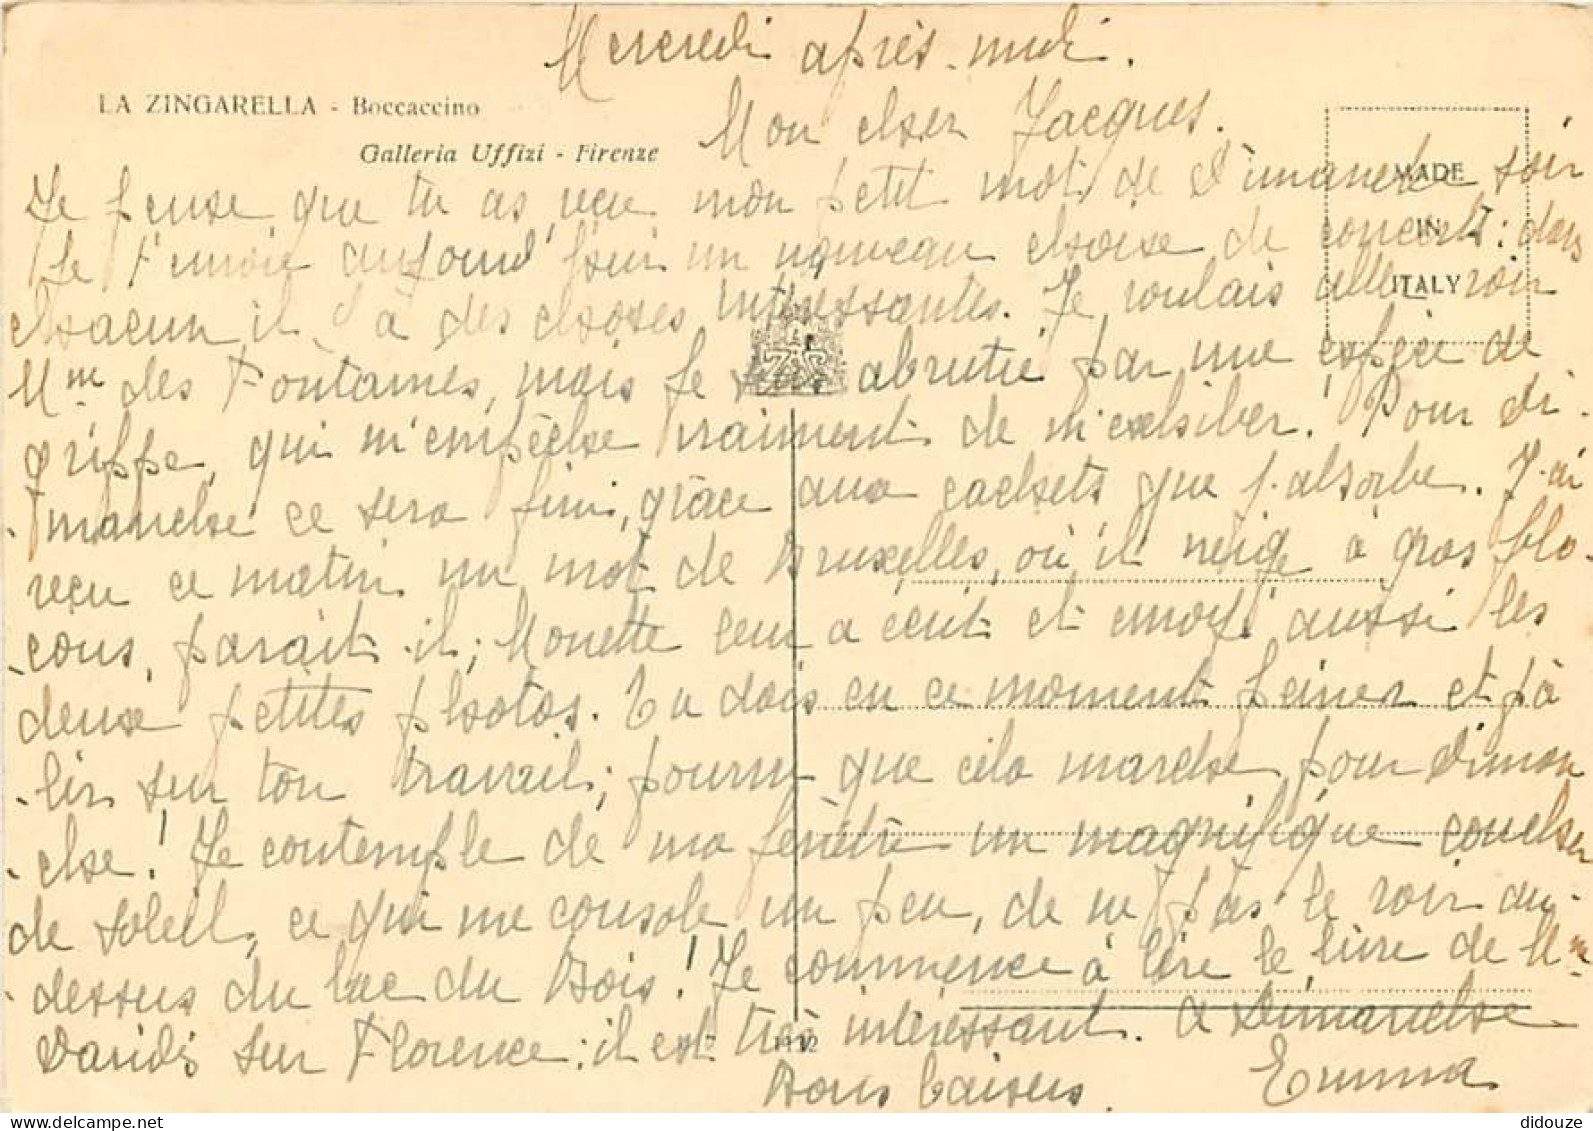 Mercredi après-midi.
LA ZINGARELLA - Boccaccino
Galleria Uffizi - Firenze
Mon cher Jacques.
MADE
IN
ITALY
Je pense que tu as reçu mon petit mot de Dimanche soir
Je t'envoie aujourd'hui un nouveau choix de concerts : dans
chacun il y a des choses intéressantes. Je voulais aller voir
Mme des Fontaines, mais je suis abrutie par une espèce de
grippe, qui m'empêche vraiment de m'exhiber. Pour di-
manche ce sera fini, grâce aux cachets que j'absorbe. J'ai
reçu ce matin un mot de Bruxelles, où il neige à gros flo-
cons, paraît-il ; Monette leur a écrit et envoyé aussi les
deux petites photos. Tu dois en ce moment peiner et pâ
lir sur ton travail ; pourvu que cela marche pour Diman
che ! Je contemple de ma fenêtre un magnifique coucher
de soleil, ce qui me console un peu, de ne pas le voir au-
dessus du lac du Bois ! Je commence à lire le livre de Mme
sur Florence : il est très intéressant. à Dimanche
1112
Bons baisers
Emma
didouze